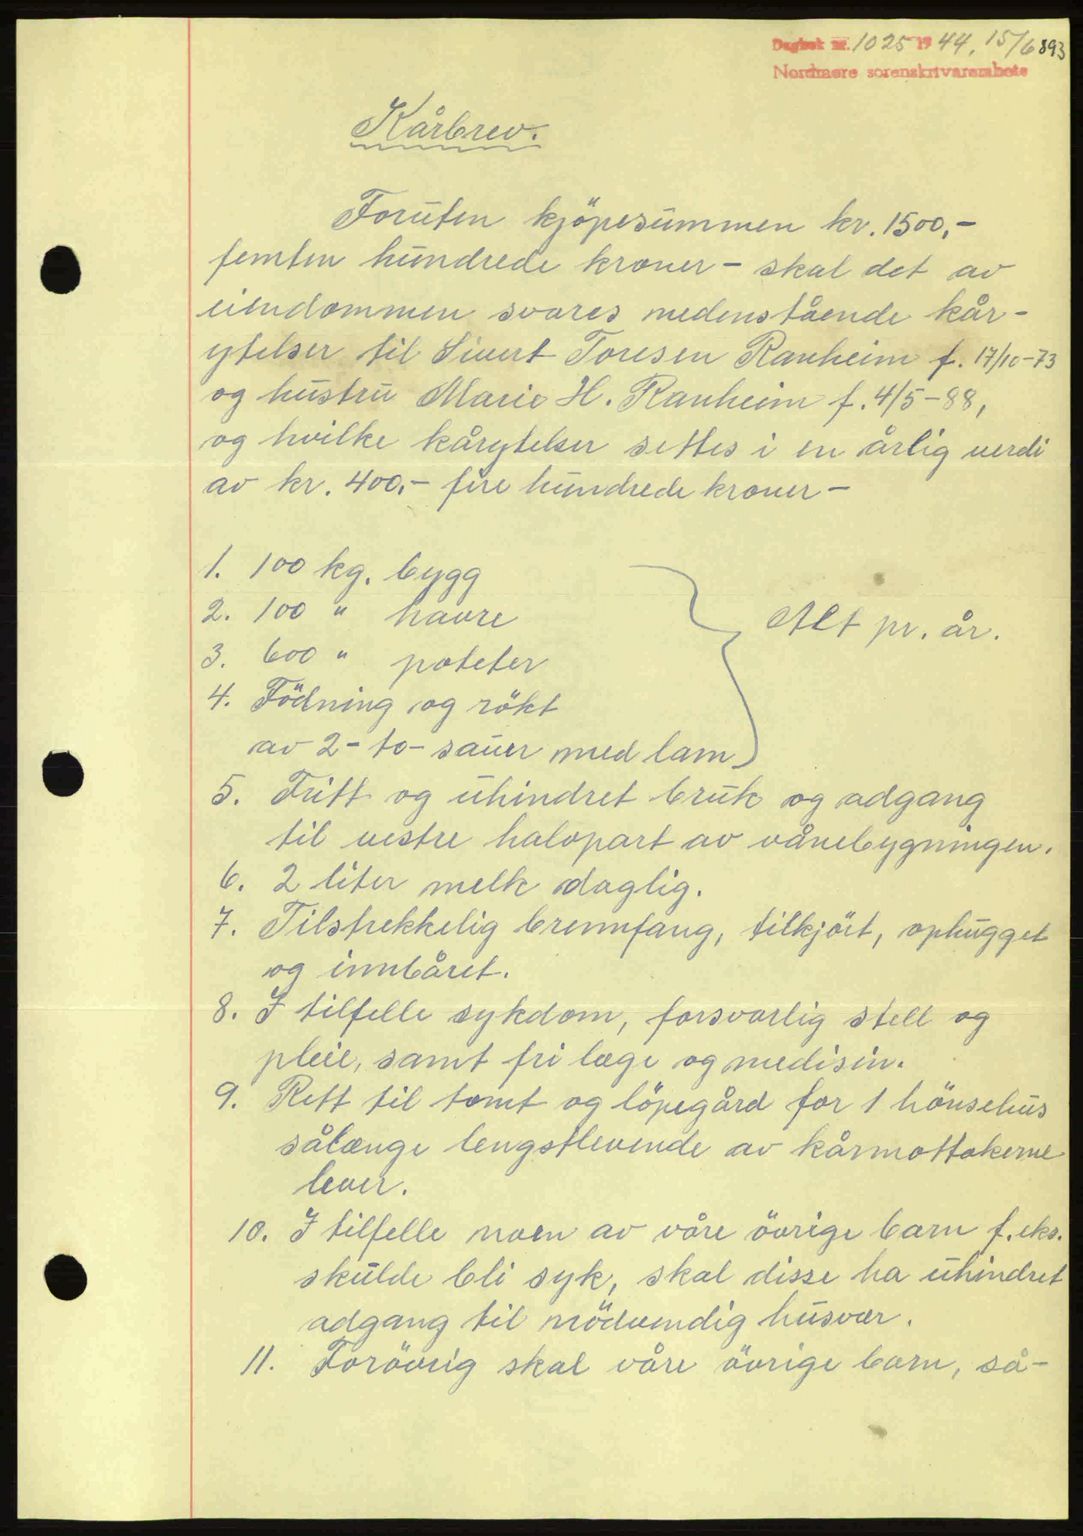 Dagbok nr. 1025 1944, 15/6 893
Nordmøre sorenskriverembete
Kårbrev.
Foruten kjöpesummen kr. 1500,-
femten hundrede kroner - skal det av
eiendommen svares nedenstående kår-
ytelser til Sivert Toresen Ranheim f. 17/10-73
og hustru Marie H. Ranheim f. 4/5-88,
og hvilke kårytelser settes i en årlig verdi
av kr. 400,- fire hundrede kroner -
1. 100 kg. bygg
2. 100 " havre
3. 600 " poteter
4. Födning og rökt
av 2 - to - sauer med lam
Alt pr. år.
5. Fritt og uhindret bruk og adgang
til vestre halvpart av vånebygningen.
6. 2 liter melk daglig.
7. Tilstrekkelig brennfang, tilkjört, ophugget
og innbåret.
8. I tilfelle sykdom, forsvarlig stell og
pleie, samt fri læge og medisin.
9. Rett til tomt og löpegård for 1 hönsehus
sålænge lengstlevende av kårmottakerne
lever.
10. I tilfelle noen av våre övrige barn f. eks.
skulde bli syk, skal disse ha uhindret
adgang til nödvendig husvær.
11. Forövrig skal våre övrige barn, så-